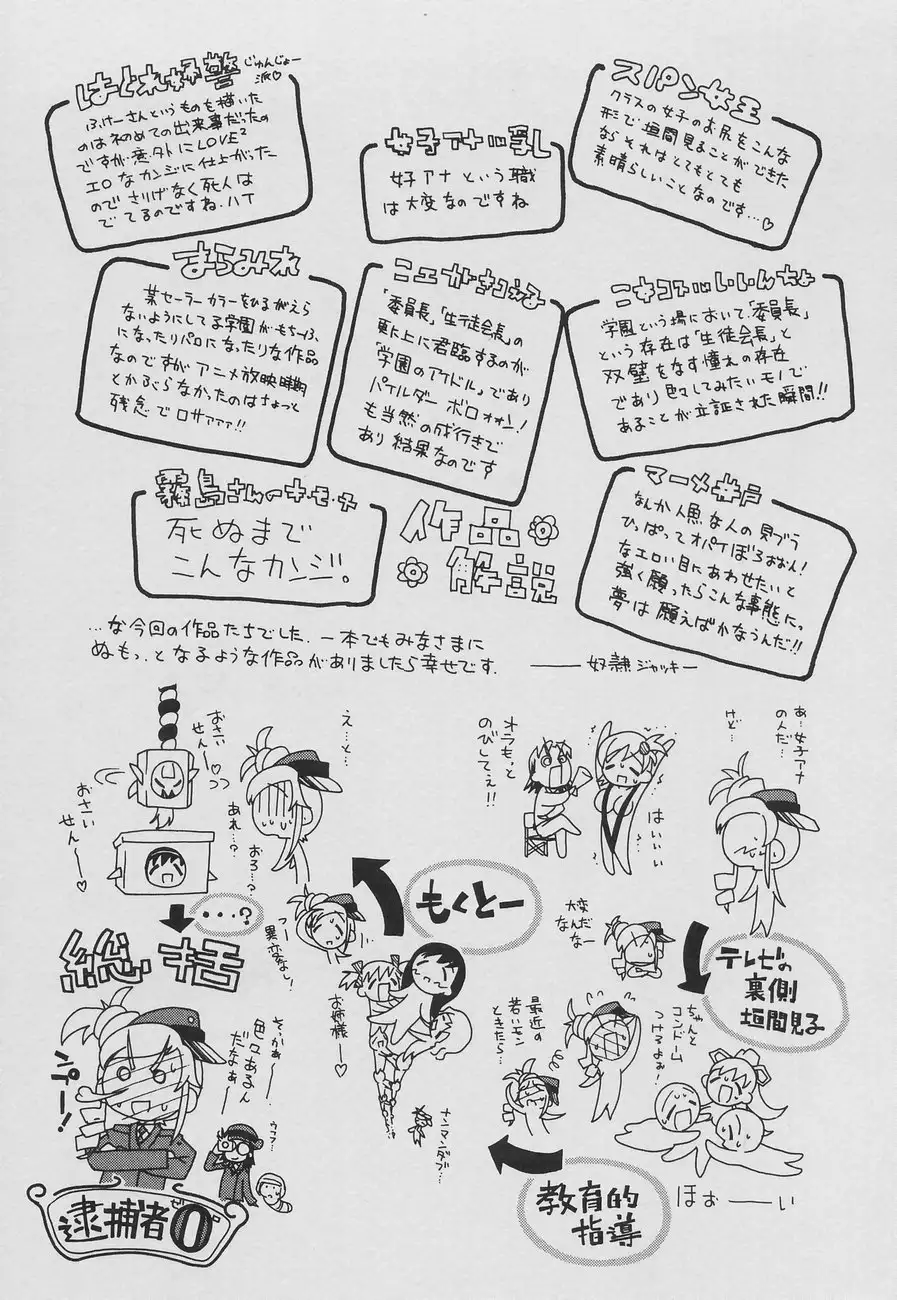 はぐれ婦警
じゅんじょー派♡
ふけーさんというものを描いた
のは初めての出来事だったの
ですが意外にLOVE²
エロなカンジに仕上がった
のでさりげなく死人は
でてるのですね.ハイ
女子アナル乳
女子アナという職
は大変なのですね
スパン女王
クラスの女子のお尻をこんな
形で垣間見ることができた
ならそれはとてもとても
素晴らしいことなのです…♡
まらみれ
某セーラーカラーをひるがえら
ないようにしてる学園がもちーふ
になったりパロになったりな作品
なのですがアニメ放映時期
とかぶらなかったのはちょっと
残念でロサァァァ!!
「委員長」「生徒会長」の
更に上に君臨するのが
「学園のアイドル」であり
パイルダー ボロォォン!
も当然の成行きで
あり結果なのです
学園という場において「委員長」
という存在は「生徒会長」と
双璧をなす憧れの存在
であり色々してみたいモノで
あることが立証された瞬間!!
霧島さんのキ・モ・チ
死ぬまで
こんなカンジ。
作品
解説
マーメ井戸
なんか人魚な人の貝ブラ
ひっぱってオパイぼろおおん!
なエロい目にあわせたいと
強く願ったらこんな事態に。
夢は願えばかなうんだ!!
…な今回の作品たちでした.一本でもみなさまに
ぬもっ.となるような作品がありましたら幸せです.
――奴隷ジャッキー
あ…女子アナ
のんだ…
けど…
はいいい
オラもっと
のびしてえ!!
え…と…
あれ…?
おろ…?
おさい
せんー♡
おさい
せんー♡
テレビの
裏側
垣間見子
大変だな
なんなー
ちゃんと
コンドーム
つけるよぉ!
最近の
若いモン
ときたら…
ほぉーーい
教育的
指導
もくとー
お姉様ー♡
ナンマンダブ…
異変なし!
…?
総括
そっかぁー
色々あるん
だなぁー
ウフフ…
プー!
逮捕者0
ゼロ